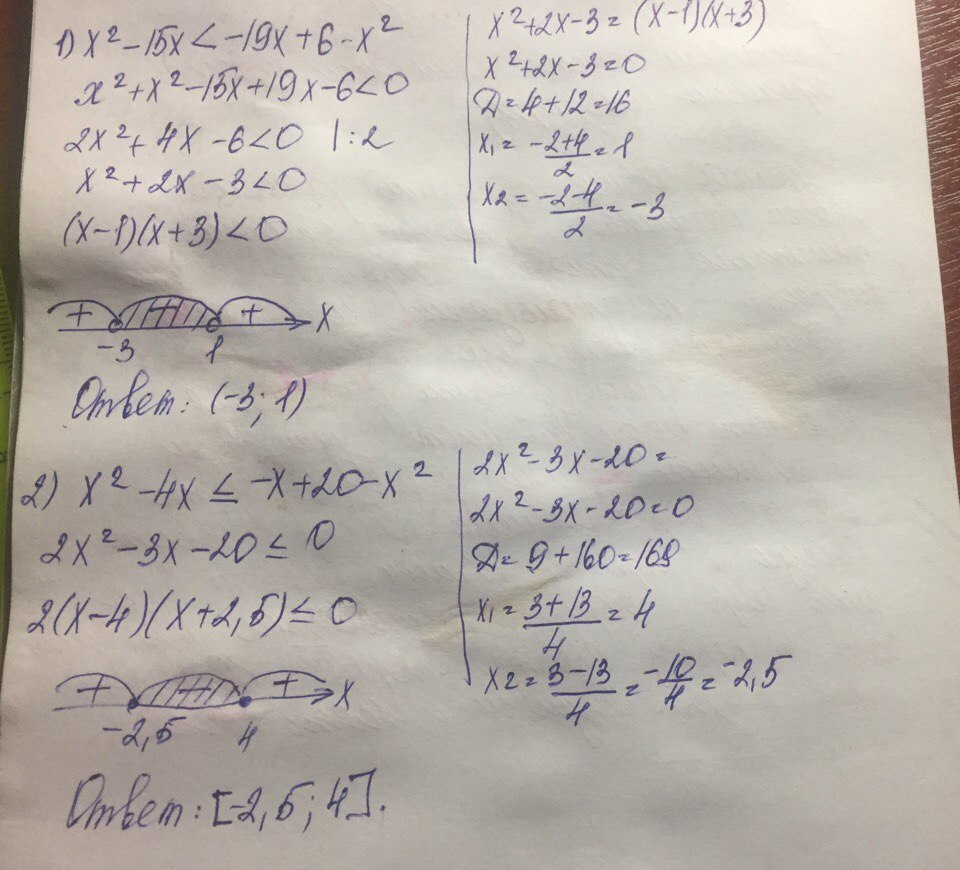 1) x² - 15x < -19x + 6 - x²
x² + x² - 15x + 19x - 6 < 0
2x² + 4x - 6 < 0 | : 2
x² + 2x - 3 < 0
(x-1)(x+3) < 0
x² + 2x - 3 = (x-1)(x+3)
x² + 2x - 3 = 0
Д = 4 + 12 = 16
x₁ = \frac{-2+4}{2} = 1
x₂ = \frac{-2-4}{2} = -3
+ - + x
-3 1
Ответ: (-3; 1)
2) x² - 4x ≤ -x + 20 - x²
2x² - 3x - 20 ≤ 0
2(x-4)(x+2,5) ≤ 0
2x² - 3x - 20 =
2x² - 3x - 20 = 0
Д = 9 + 160 = 169
x₁ = \frac{3+13}{4} = 4
x₂ = \frac{3-13}{4} = \frac{-10}{4} = -2,5
+ - + x
-2,5 4
Ответ: [-2,5; 4].